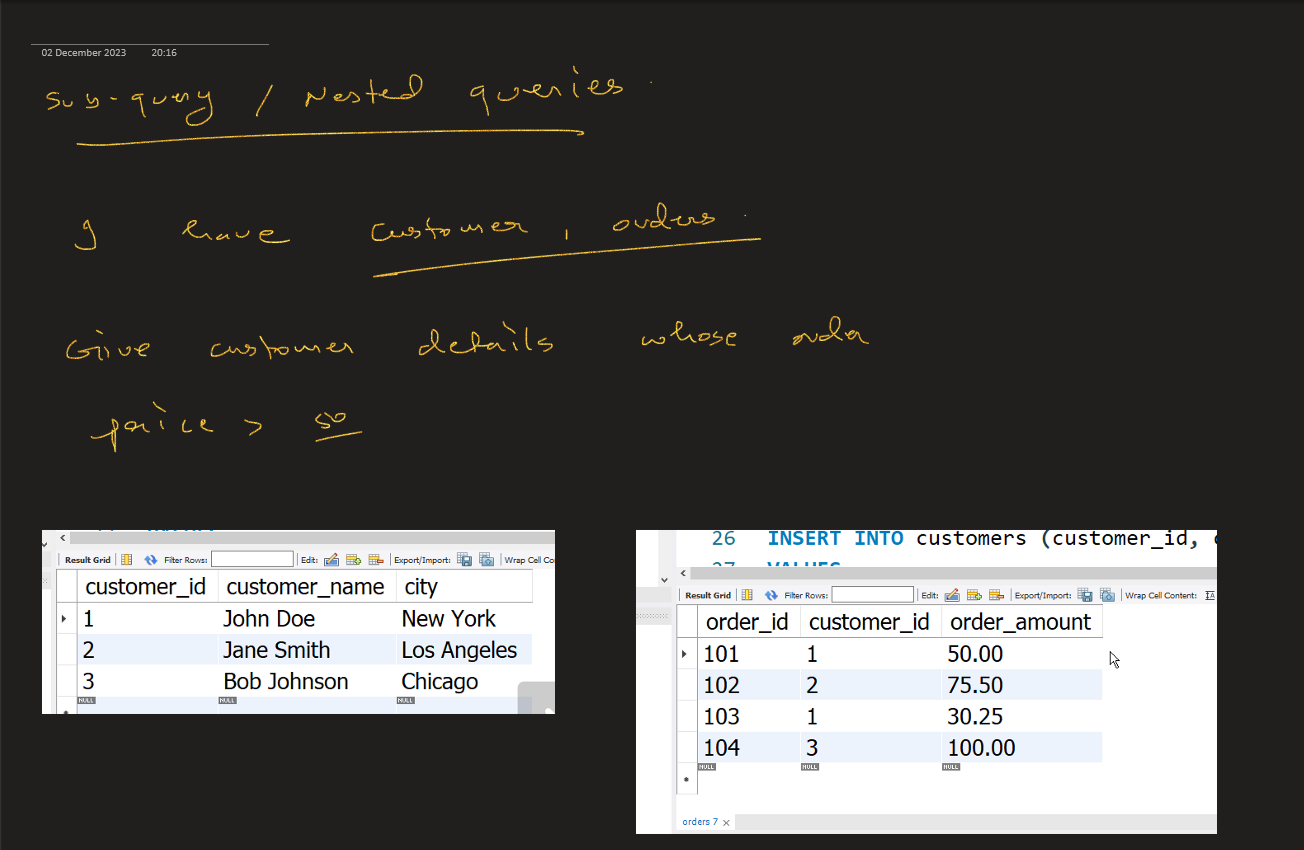 02 December 2023 20:16
Sub-query / Nested queries
I have customer, orders
Give customer details whose order
price > 50
Result Grid Filter Rows: Edit: Export/Import: Wrap Cell Co
customer_id customer_name city
1 John Doe New York
2 Jane Smith Los Angeles
3 Bob Johnson Chicago
NULL NULL NULL
26 INSERT INTO customers (customer_id,
27 VALUES
Result Grid Filter Rows: Edit: Export/Import: Wrap Cell Content:
order_id customer_id order_amount
101 1 50.00
102 2 75.50
103 1 30.25
104 3 100.00
NULL NULL NULL
orders 7